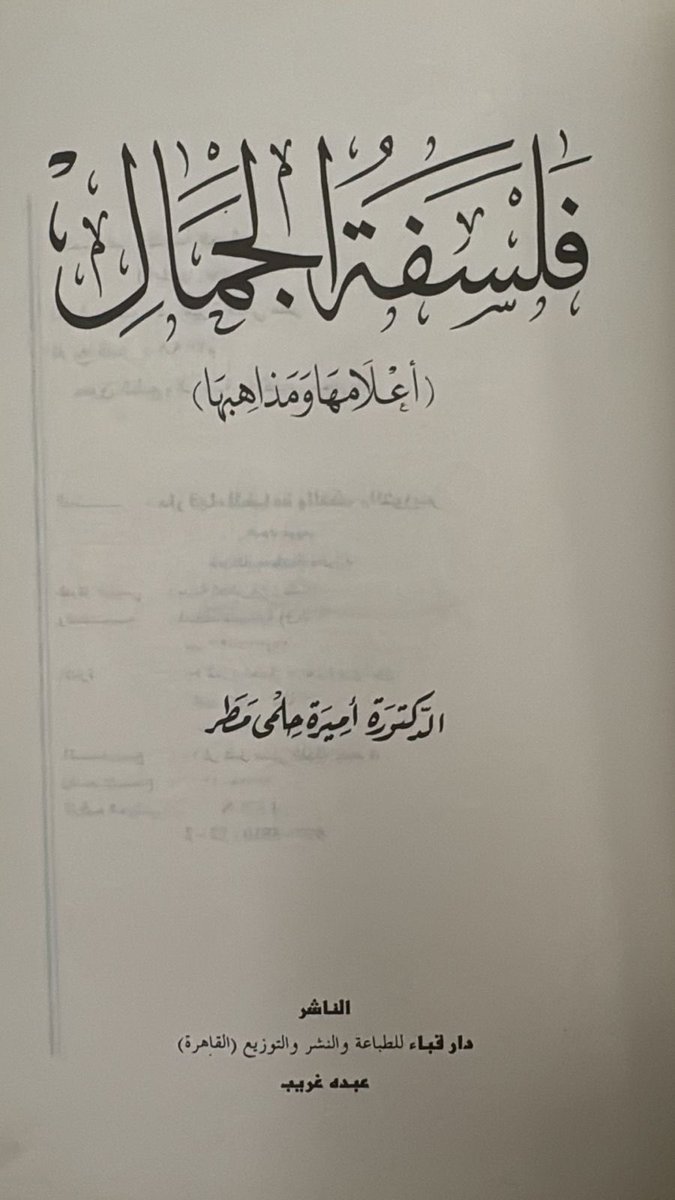 فَلْسَفَةُ الجَمَالِ
(أعْلَامهَا وَمَذاهِبهَا)
الدّكتورَة أمِيرَة حِلْمى مَطَر
الناشر
دار قباء للطباعة والنشر والتوزيع (القاهرة)
عبده غريب